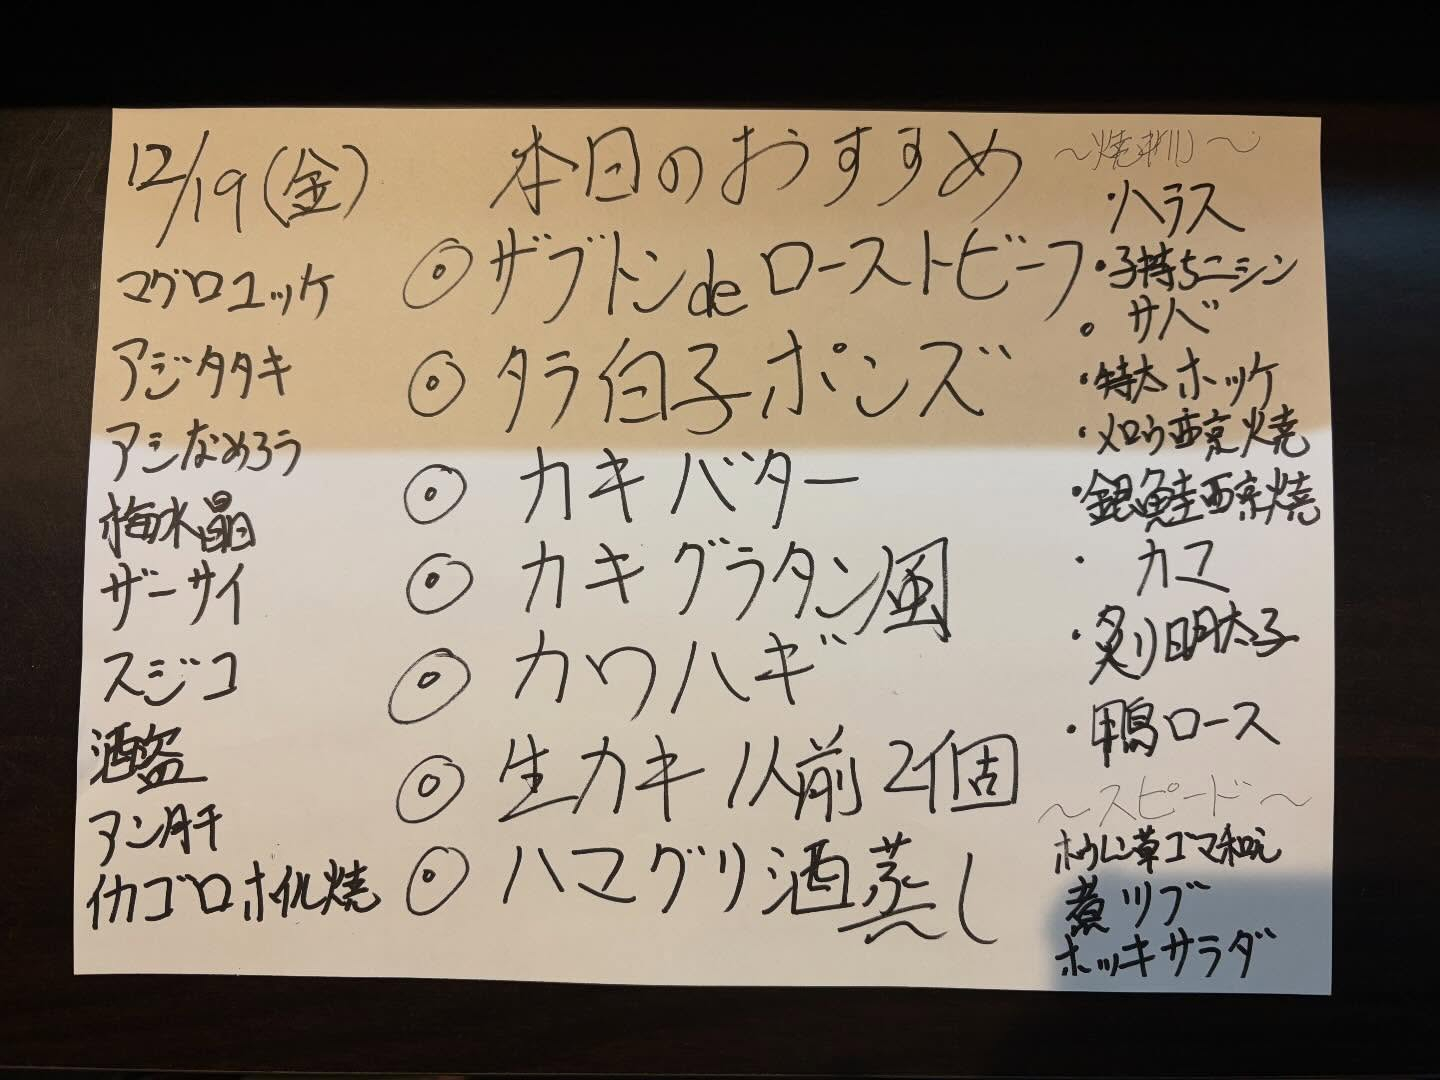 12/19(金)
マグロユッケ
アジタタキ
アジなめろう
梅水晶
ザーサイ
スジコ
酒盗
アン肝
イカゴロホイル焼
本日のおすすめ
◎ザブトンdeローストビーフ
◎タラ白子ポンズ
◎カキバター
◎カキグラタン風
◎カワハギ
◎生カキ1人前2個
◎ハマグリ酒蒸し
・ハラス
・子持ちニシン
。サバ
・特大ホッケ
・メロウ西京焼
・銀鮭西京焼
・カマ
・炙り明太子
・鴨ロース
〜スピード〜
ホウレン草ゴマ和え
煮ツブ
ホッキサラダ